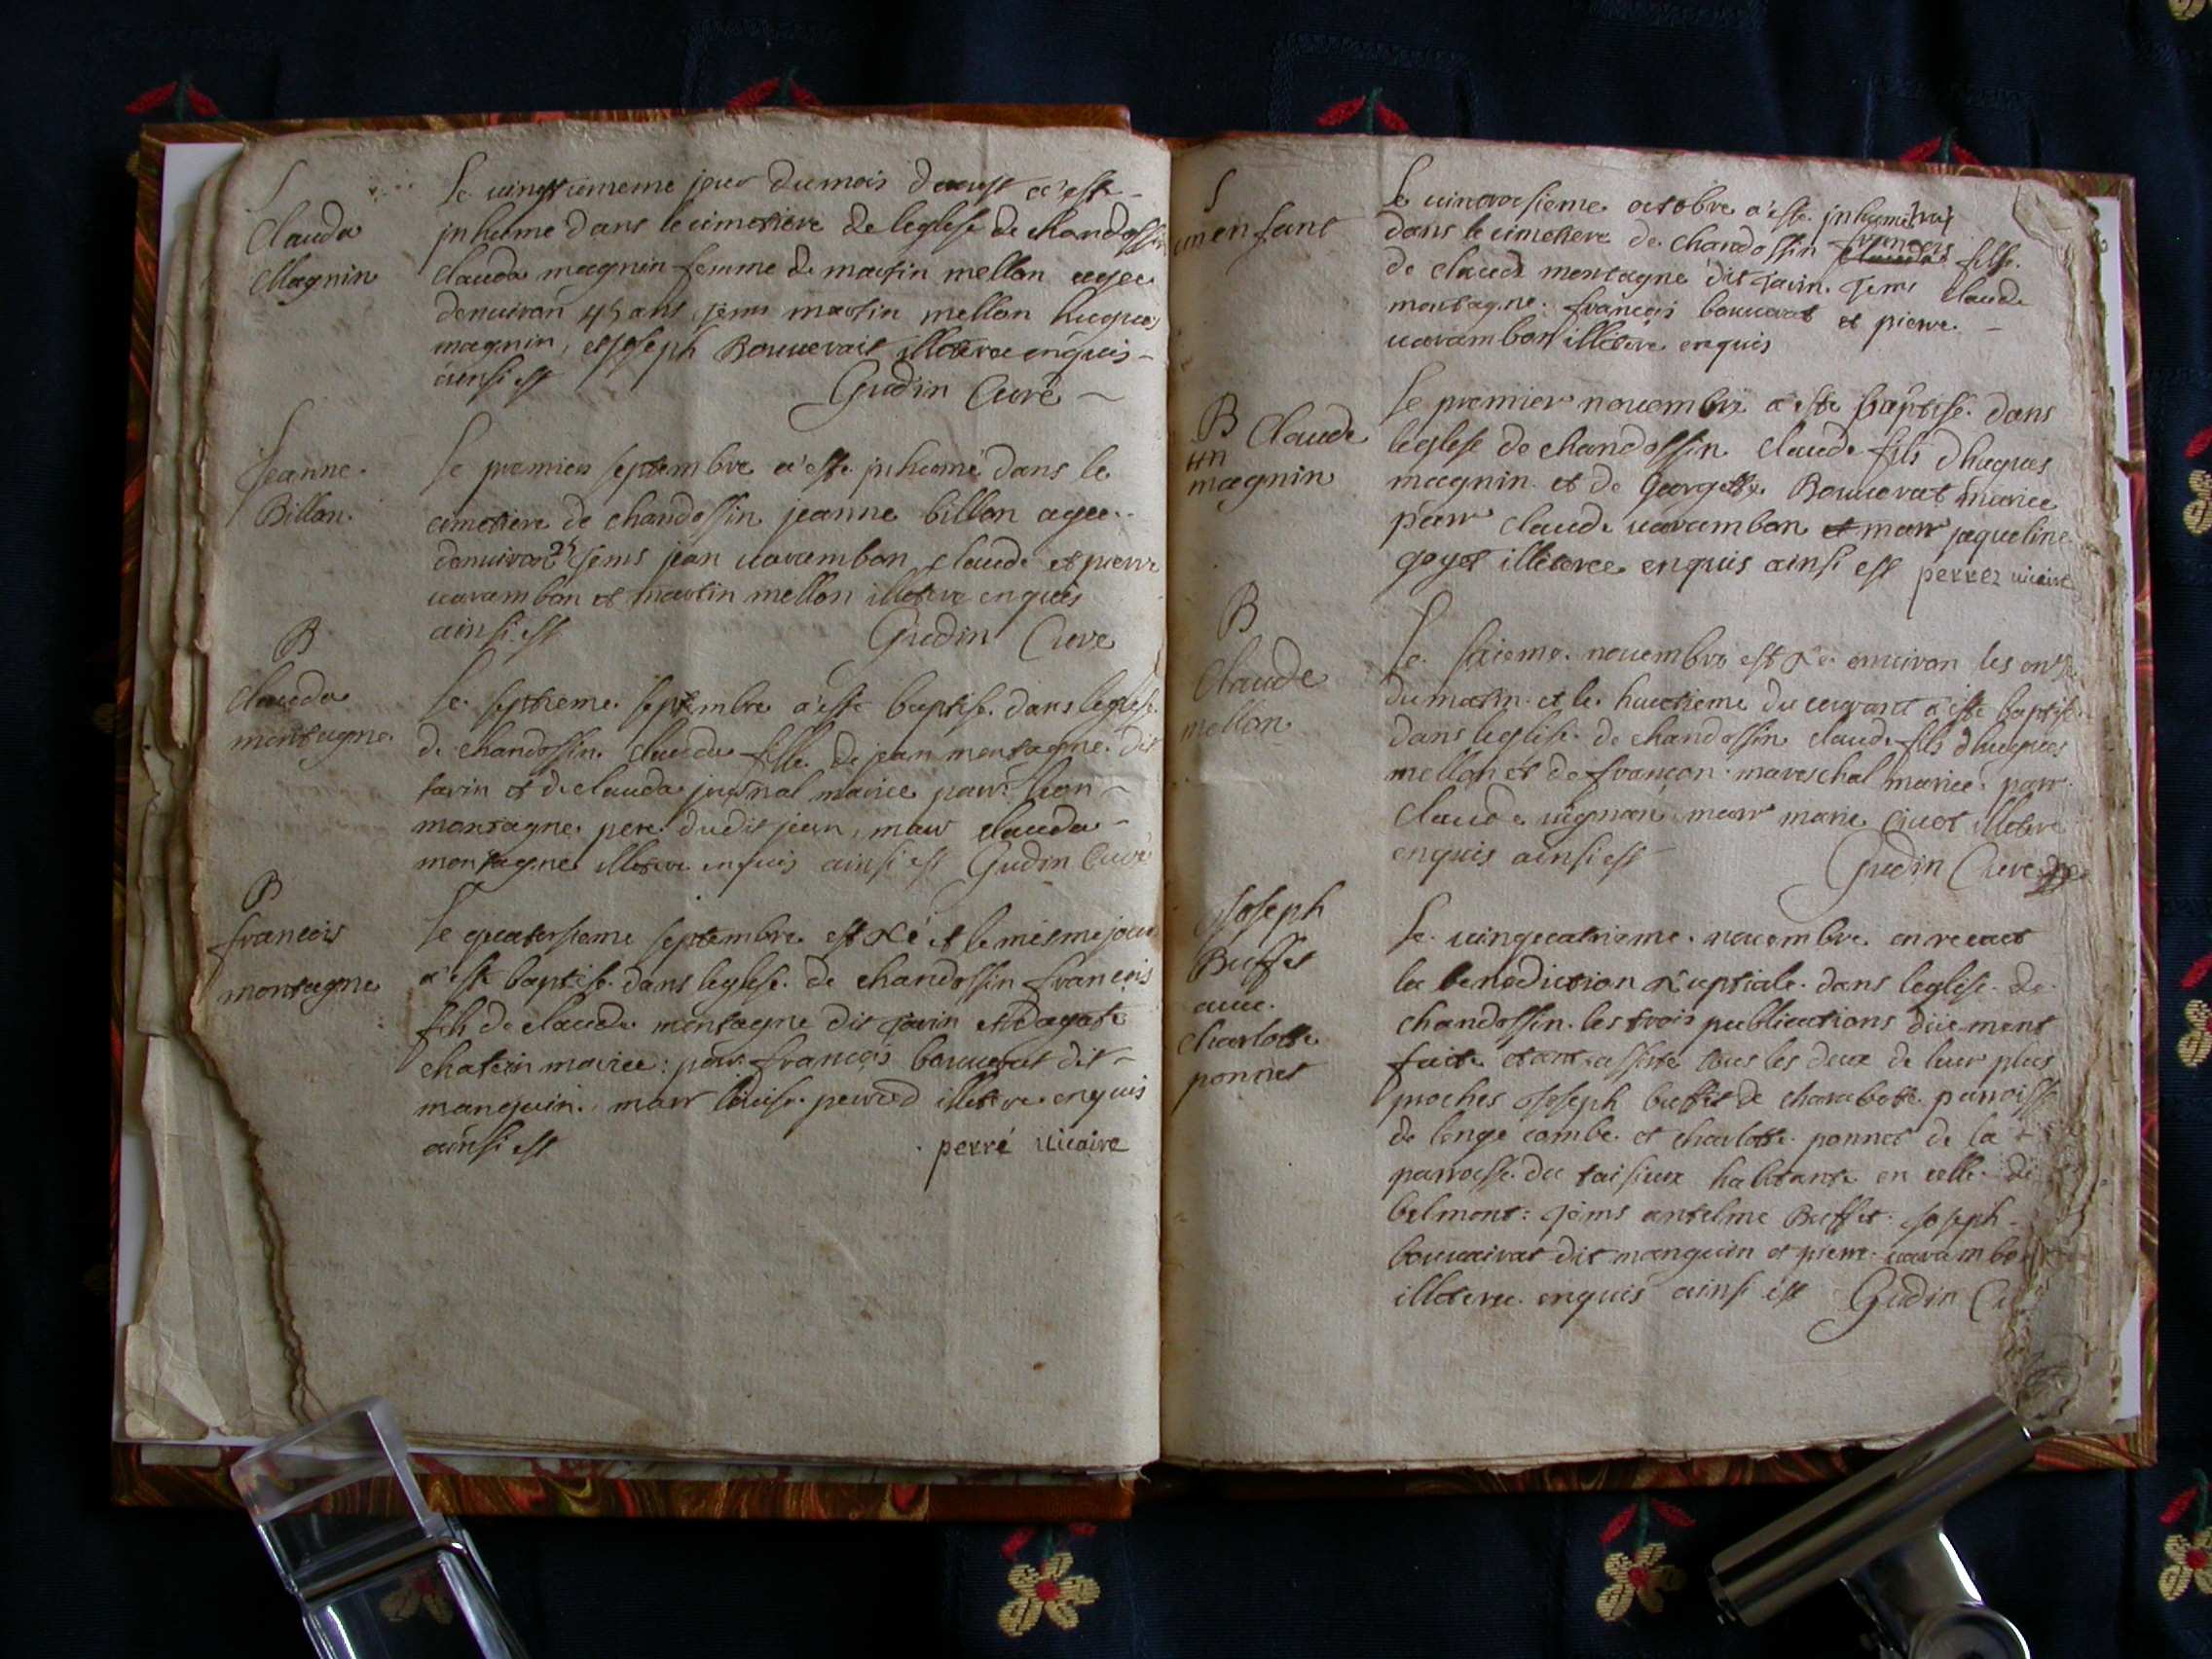 S
Clauda
Magnin
Le
jour du mois daoust a'este
inhume dans le cimetiere de leglese de chandossin
clauda magnin femme de martin mellon agee
denuiron 45 ans, jems martin mellon hugues
magnin, et joseph Bouuerait illetere enquis
ainsi est
Gudin Curé
Jeanne
Billon.
Le premier septembre a'este inhumé dans le
cimetiere de chandossin jeanne billon agee
denuiron jems jean uarambon claude et pierre
uarambon et martin mellon illetere enquis
ainsi est
Gudin Cure
B
clauda
montagne.
Le septieme septembre a'este baptise dans leglese
de chandossin clauda fille de jean montagne dit
tavin et de clauda mariee parr
montagne pere dudit jean, marr clauda
montagne illetere enquis ainsi est Gudin Curé
B
francois
montagne
Le quatorsieme septembre est Né et le mesme jour
a'este baptise dans leglese de chandossin francois
fils de claude montagne dit tavin et dagate
chatein mariee: parr francois bouuerat dit
manguin. marr illetere enquis
ainsi est
perré uicaire
S
un enfant
Le octobre a'este inhume
dans le cimetiere de chandossin francois fils
de claude montagne dit tavin. jems claude
montagne francois bouuerat et pierre
uarambon illetere enquis
B
Claude
magnin
Le premier nouembre a este baptise dans
leglese de chandossin claude fils dhugues
magnin et de georgette Bouuerat mariee
parr claude uarambon et marr jaqueline
goyet illeteree enquis ainsi est perrez uicaire
B
Claude
mellon
Le nouembre est Né enuiron les
du matin et le huictieme du courant a este baptise
dans leglise de chandossin claude fils dhugues
mellon et de francon mareschal mariee parr
claude uignan marr marie illetere
enquis ainsi est
Gudin Cure
Joseph
Buffet
auec
charlotte
ponnet
Le uingcatrieme nouembre on receut
la benediction Nuptiale dans leglese de
chandossin les trois publications düement
faite etant assiste tous les deux de leur plus
proches Joseph buffet de charabotte parroisse
de longe combe et charlotte ponnet de la
parroisse du taisieux habitante en celle de
belmont: jems antelme Buffet Joseph
bouuairat dit manguin et pierre uarambon
illetere enquis ainsi est Gudin